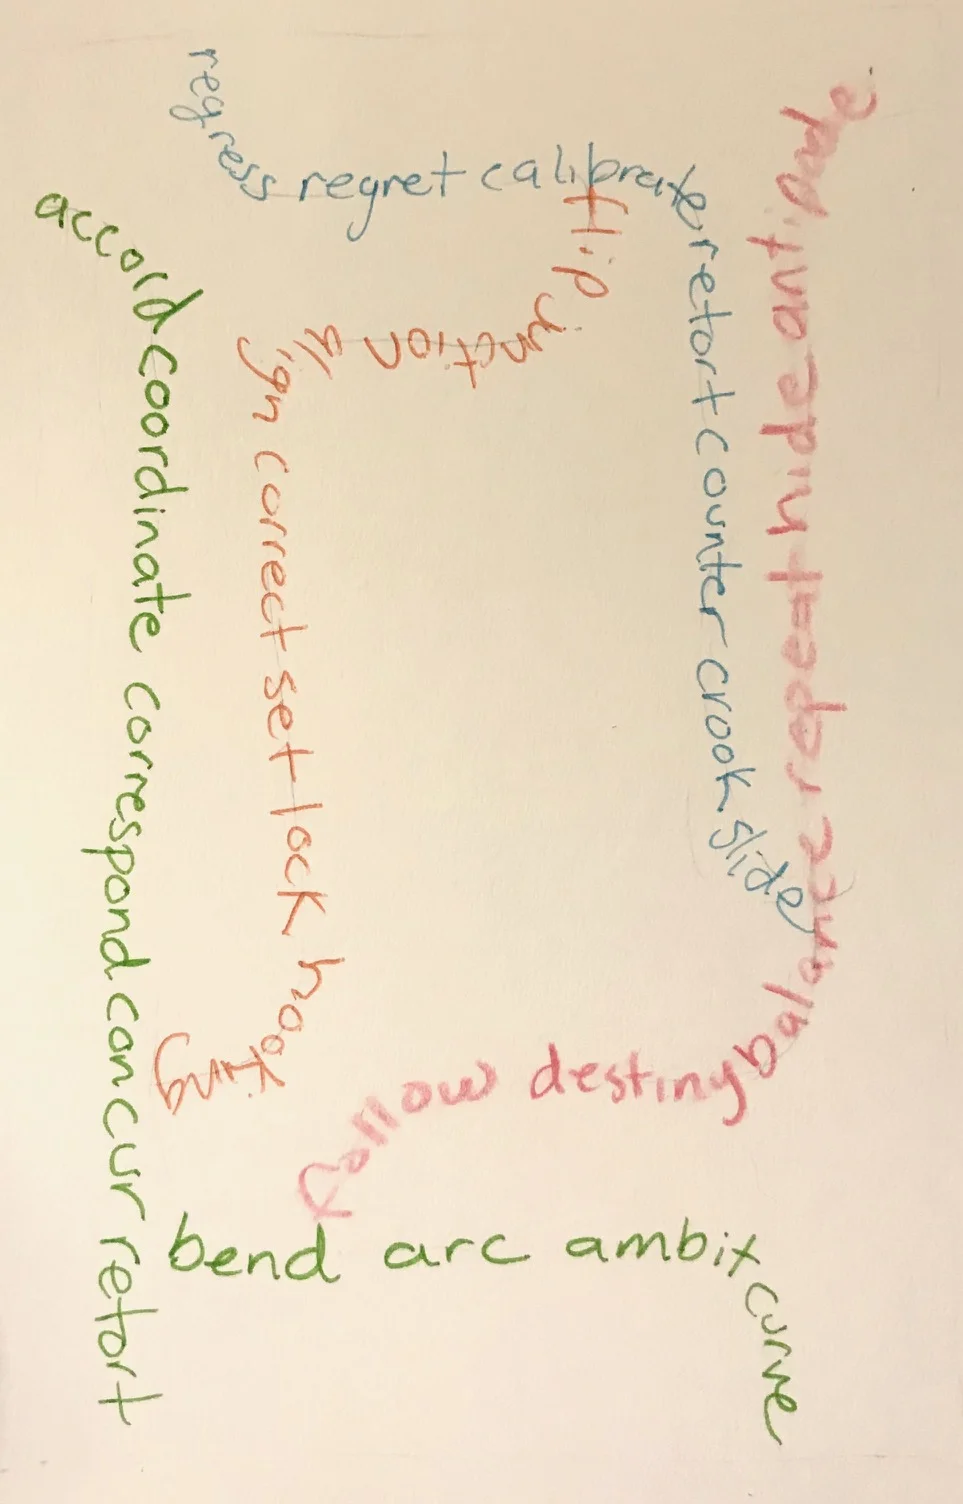 regress regret calibrate retort counter crook slide
flip junction align correct set lock hooking
accord coordinate correspond concur retort
bend arc ambit curve
follow destiny balance repeat hide antipode